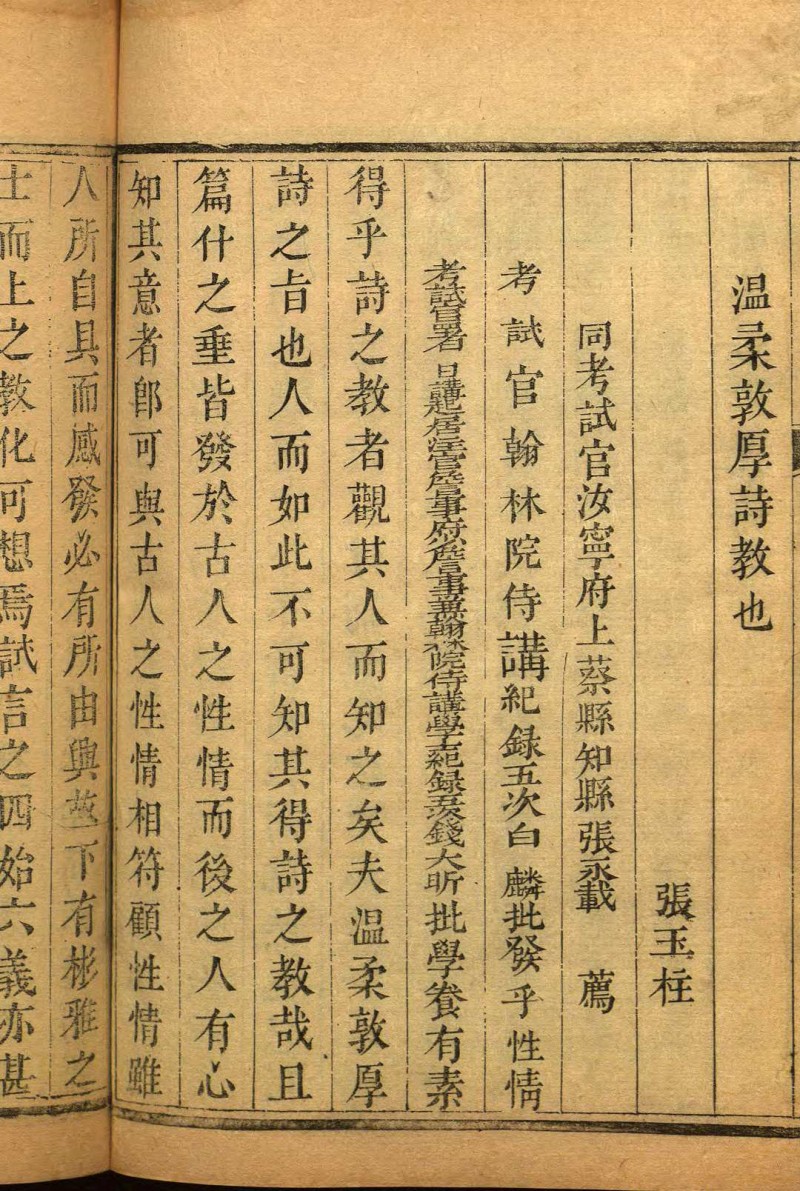 温柔敦厚詩教也
張玉柱
同考試官汝寧府上蔡縣知縣張承載 薦
考試官翰林院侍講紀錄五次白 麟批發乎性情
考試官署日講起居注官詹事府詹事兼翰林院侍講學士紀錄叐錢大昕批學養有素
得乎詩之教者觀其人而知之矣夫温柔敦厚
詩之旨也人而如此不可知其得詩之教哉且
篇什之垂皆發於古人之性情而後之人有心
知其意者卽可與古人之性情相符顧性情雖
人所自具而感發必有所由興故下有彬雅之
士而上之教化可想焉試言之四始六義亦甚